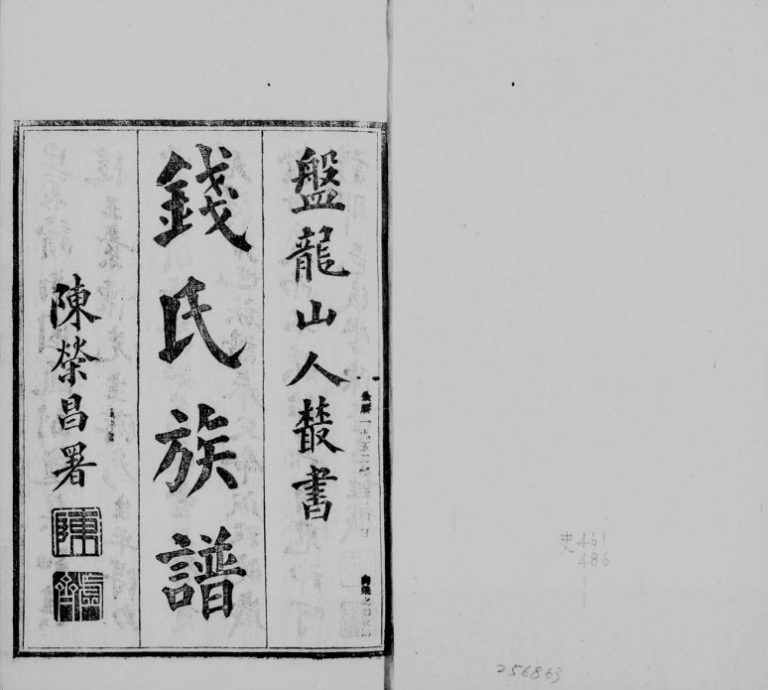 盤龍山人叢書
錢氏族譜
陳榮昌署
史 461
486
1
256863